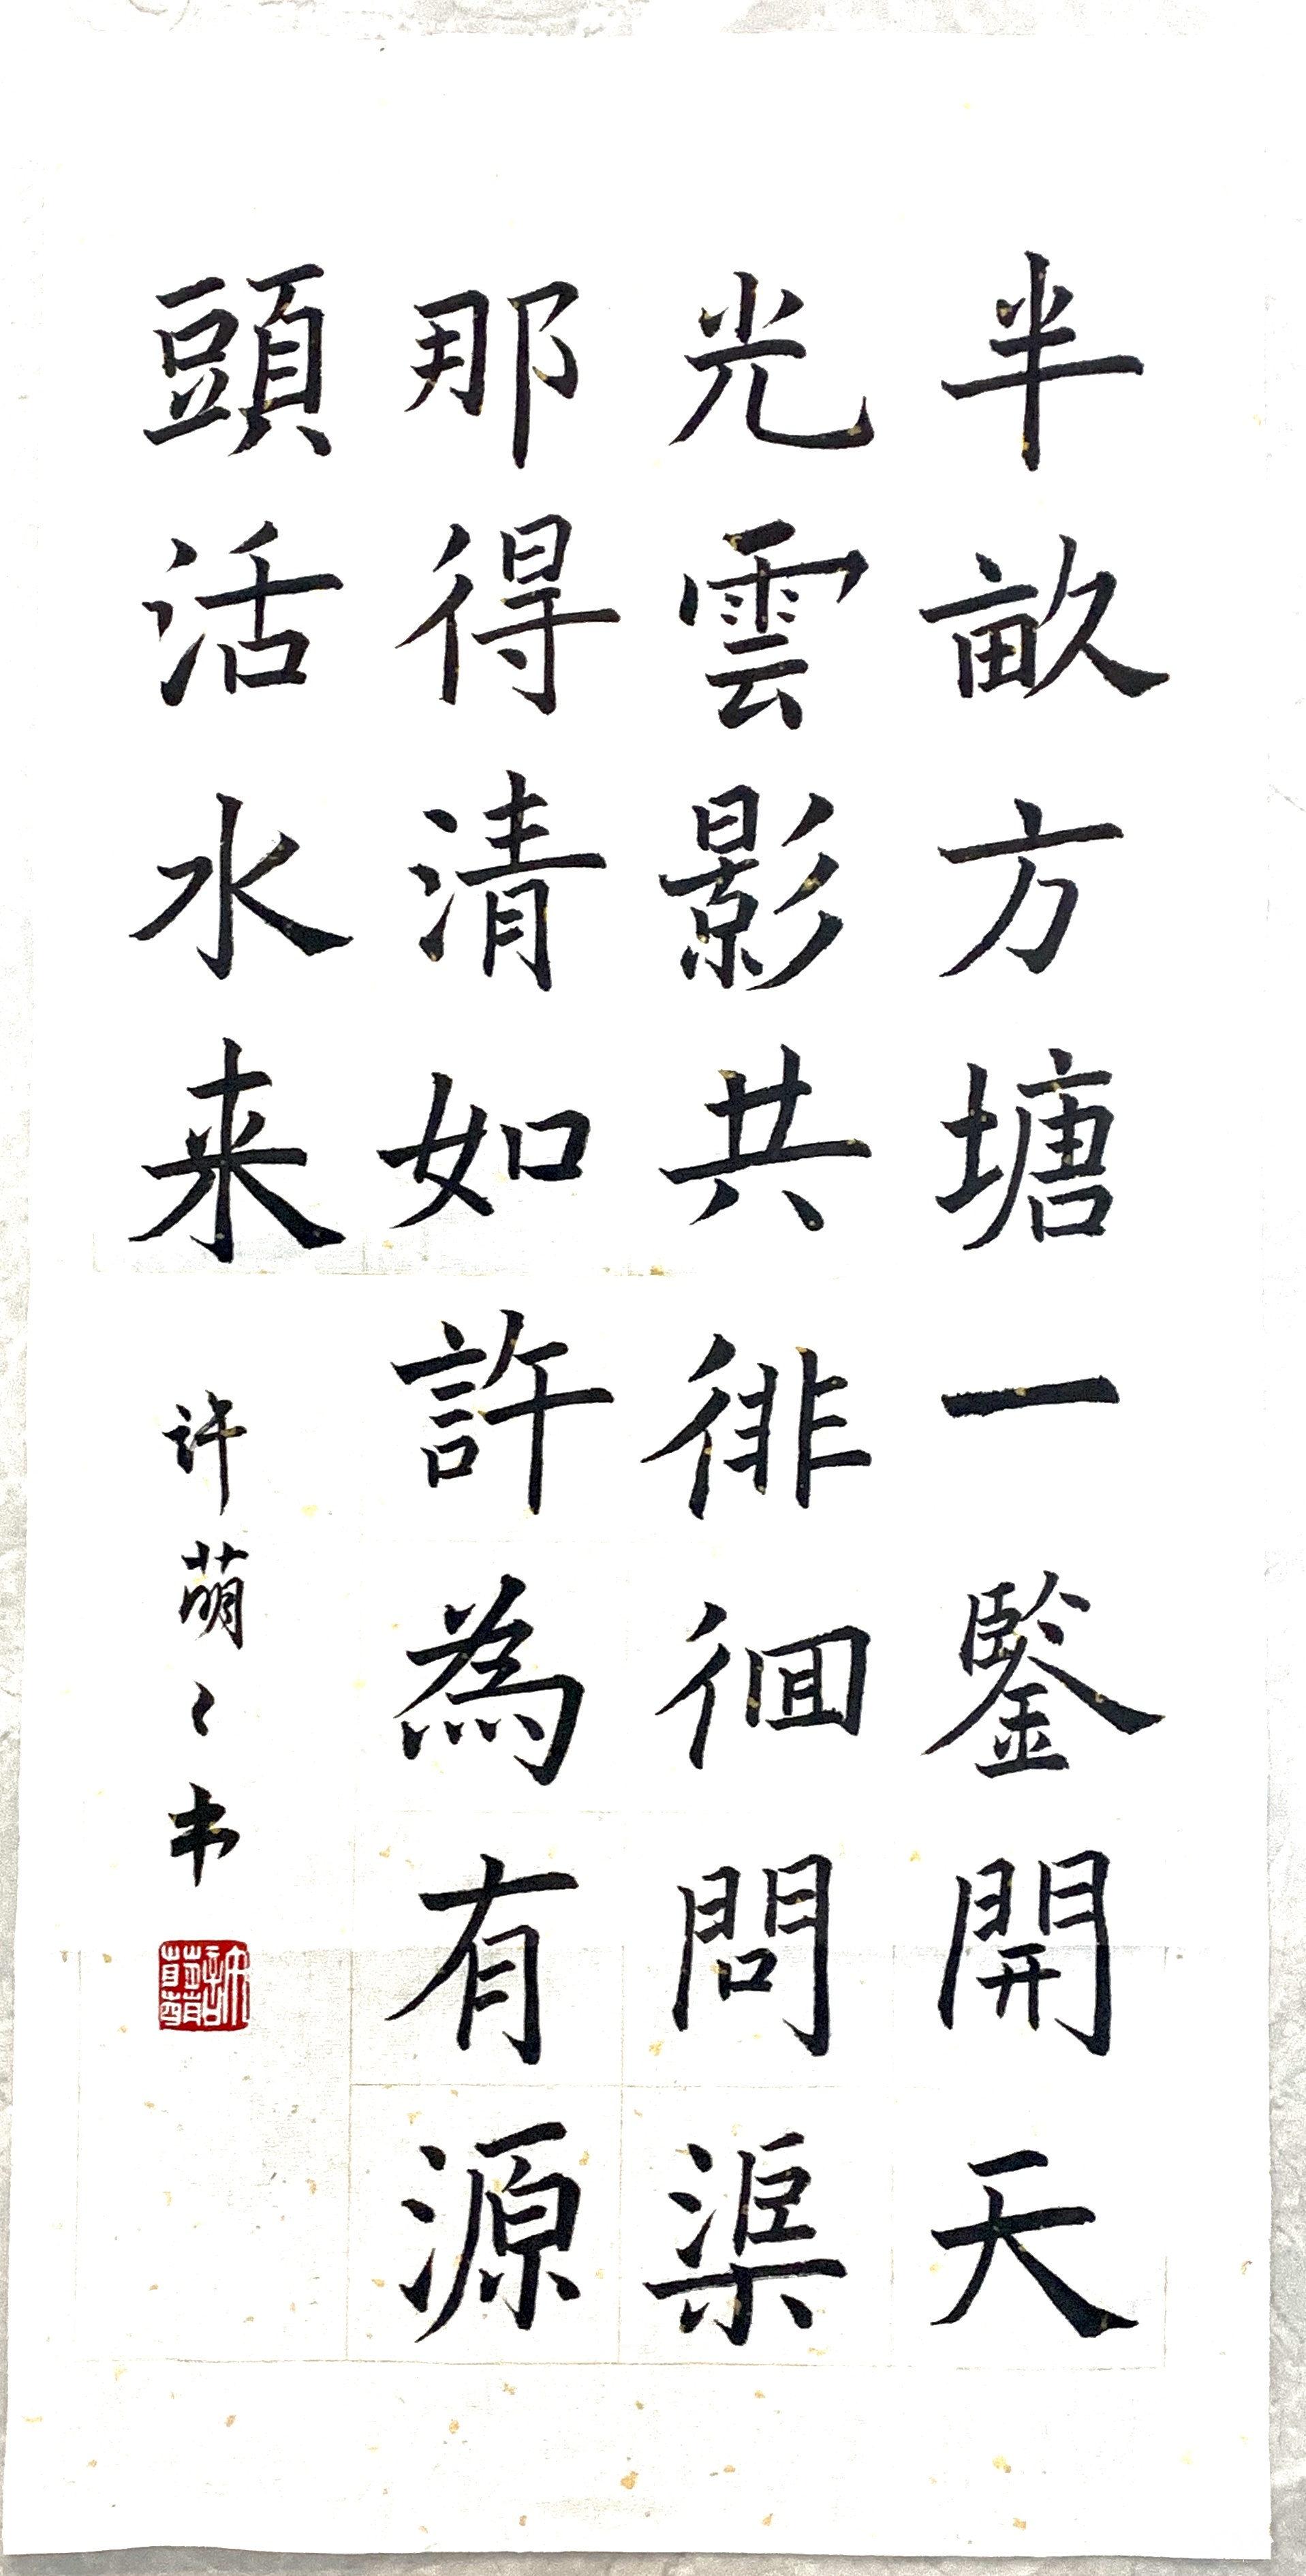 半畝方塘一鑒開天
光雲影共徘徊問渠
那得清如許為有源
頭活水来
许萌〻书
許萌萌